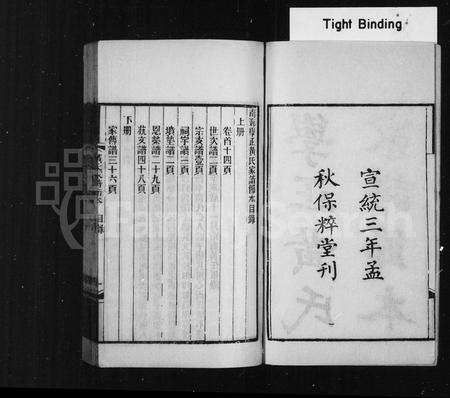 Tight Binding
宣統三年孟
秋保粹堂刊
南海學正黃氏家譜節本目錄
上冊
卷首十四頁
世次譜二頁
宗支譜壹頁
祠宇譜三頁
墳塋譜二頁
恩榮譜二十九頁
藝文譜四十八頁
下冊
家傳譜三十六頁
目錄